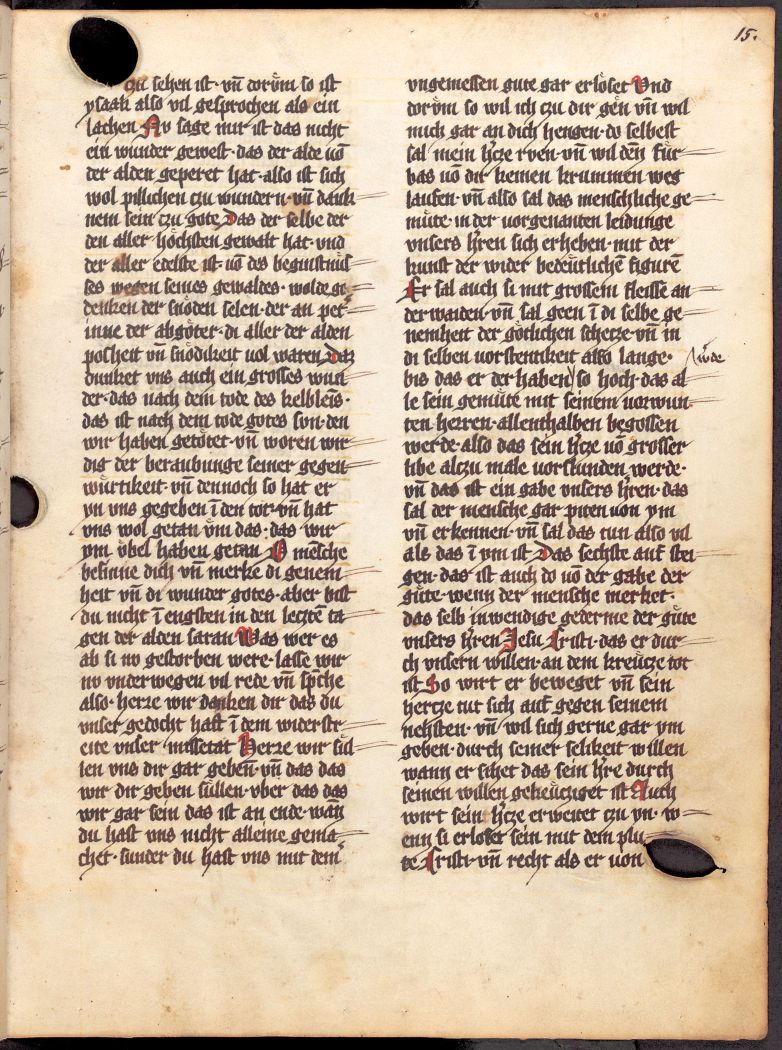 15.
czu sehen ist · vn̄ dorüm so ist
ysaak also vil gesprochen als ein
lachen Nv sage mir ist das nicht
ein wunder gewest · das der alde uō
der alden geperet hat · also ist sich
wol pillichen czu wundern · vn̄ dank
nem sein czu gote Das der selbe der
den aller höchsten gewalt hat · vnd
der aller edelste ist · uō des beginstnis
ses wegen seines gewaldes · wolde ge
denken der snöden selen · der an pet
inne der abgöter · di aller der alden
posheit vn̄ snödikeit uol waren Daz
dunket vns auch ein grosses wun
der · das nach dem tode des kelbleīs ·
das ist nach dem tode gotes son · den
wir haben getötet · vn̄ woren wir
dig der beraubunge seiner gegen
würtikeit · vn̄ dennoch so hat er
yn vns gegeben ī den tot · vn̄ hat
vns wol getan vm̄ das · das wir
ym vbel haben getan O mēsche
besinne dich vn̄ merke di genem
heit vn̄ di wunder gotes · aber bist
du nicht ī engsten in den lecztē ta
gen der alden saran Was wer es
ab si no gestorben were · lasse wir
no vnderwegen vil rede vn̄ sp̄che
also · herre wir danken dir das du
vnser gedocht hast ī dem widerstr
eite vnser missetat Herre wir sül
len vns dir gar geben̄ · vn̄ das das
wir dir geben süllen · vber das das
wir gar sein das ist an ende · wan̄
du hast vns nicht alleine gema
chet · sunder du hast vns mit dem
vngemessen gute gar erlöset Vnd
dorüm so wil ich czu dir gen̄ vn̄ wil
mich gar an dich hengen · do selbest
sal mein h̄cze rven · vn̄ wil dēn für
bas uō dir keinen krummen weg
laufen · vn̄ also sal das menschliche ge
müte · in der uorgenanten leidunge
vnsers h̄ren sich erheben · mit der
kunst der wider bedeütlichē figurē
Er sal auch si mit grossem fleisse an
der waiden · vn̄ sal geen ī di selbe ge
nemheit der götlichen schetze · vn̄ in
di selben uorstentikeit also lange ·
bis das er der haben so hoch · das al
wde
le sein gemüte mit seinem uorwun
ten herren · allenthalben begossen
werde · also das sein h̄cze uō grosser
libe alczu male uorswunden werde ·
vn̄ das ist ein gabe vnsers h̄ren · das
sal der mensche gar piten uon ym
vn̄ erkennen · vn̄ sal das tun also vil
als das ī ym ist Das sechste auf stei
gen · das ist auch do uō der gabe der
güte · wenn der mensche merket ·
das selb inwendige gederme der güte
vnsers h̄ren Jesu Cristi · das er dur
ch vnsern willen · an dem kreücze tot
ist So wirt er beweget vn̄ sein
hercze tut sich auf gegen seinem
nehsten · vn̄ wil sich gerne gar ym
geben · durch seiner selikeit willen
wann er sihet das sein h̄re durch
seinen willen gekreücziget ist Auch
wirt sein h̄cze erweitet czu yn · w
enn si erloset sein mit dem plu
te Cristi · vn̄ recht als er uon